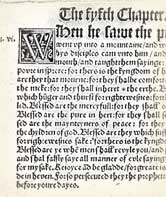 The fyfth Chapter
When he sawe the p
went vp into a mountaine/ and w
hys disciples cam vnto him/ and
mouth/and taught them sayinge:
povre in sprete: for thers is the kyngdom of h
are they that mourne: for they shalbe comfor
the meke: for they shall inheret the erthe. Bl
which hunger and thurst for rightewesnes: f
led. Blessed are the mercyfull: for they shall
Blessed are the pure in hert: for they shall s
sed are the maynteyners of peace: for the
the chyldren of god. Blessed are they which suff
for rightwesnes sake: for thers is the kyngdo
Blessed are ye whē men shall revyle you/and
and shal falsly saye all manner of evle sayings
for my sake. Reioyce ād be gladde/ for greate is
de in heven. For so persecuted they the prophet
before youre dayes.